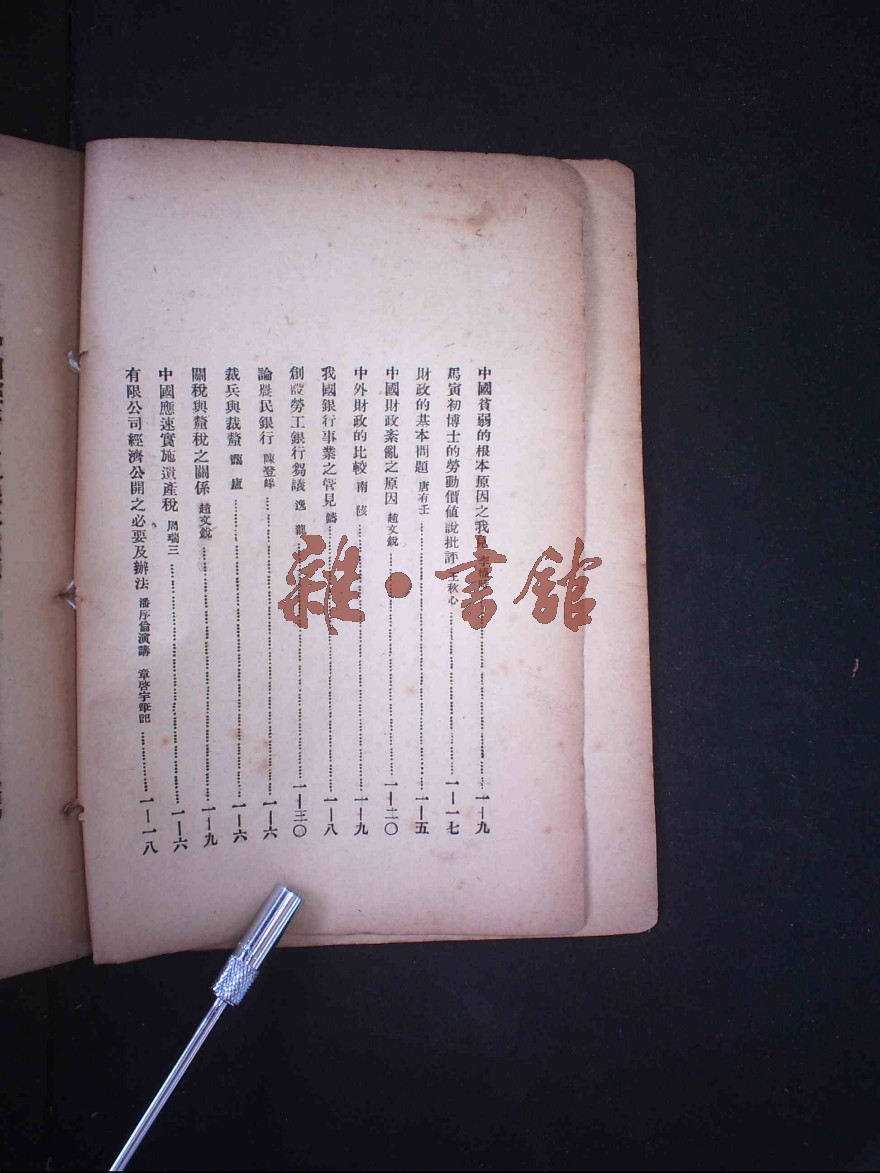 中國貧弱的根本原因之我見 一—九
馬寅初博士的勞動價值說批評 王秋心 一—一七
財政的基本問題 唐有壬 一—五
中國財政紊亂之原因 趙文銳 一—二〇
中外財政的比較 南陔 一—九
我國銀行事業之管見 一—八
創設勞工銀行芻議 逸龍 一—三〇
論農民銀行 陳登 一—六
裁兵與裁釐 廬 一—六
關稅與釐稅之關係 趙文銳 一—九
中國應速實施遺產稅 周瑞三 一—六
有限公司經濟公開之必要及辦法 潘序倫演講 章啓宇筆記 一—一八
雜·書館